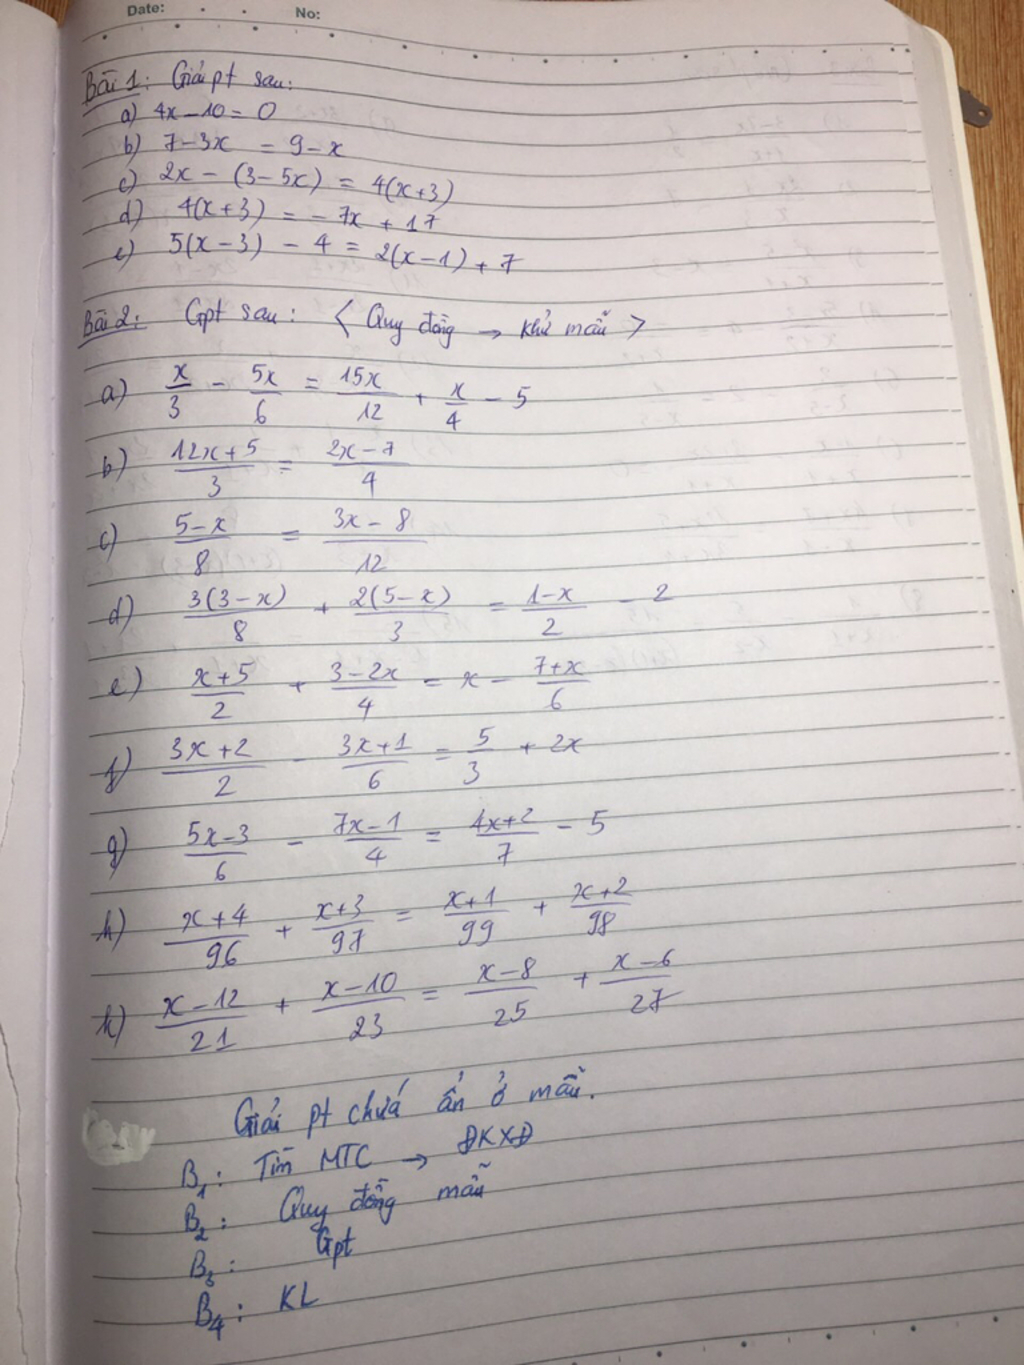 Date: No:
Bài 1: Giải pt sau:
a) 4x - 10 = 0
b) 7 - 3x = 9 - x
c) 2x - (3 - 5x) = 4(x+3)
d) 4(x+3) = - 7x + 17
e) 5(x - 3) - 4 = 2(x - 1) + 7
Bài 2: Gpt sau: < Quy đồng → khử mẫu >
a) x/3 - 5x/6 = 15x/12 + x/4 - 5
b) (12x+5)/3 = (2x-7)/4
c) (5-x)/8 = (3x-8)/12
d) 3(3-x)/8 + 2(5-x)/3 = (1-x)/2 - 2
e) (x+5)/2 + (3-2x)/4 = x - (7+x)/6
f) (3x+2)/2 - (3x+1)/6 = 5/3 + 2x
g) (5x-3)/6 - (7x-1)/4 = (4x+2)/7 - 5
h) (x+4)/96 + (x+3)/97 = (x+1)/99 + (x+2)/98
k) (x-12)/21 + (x-10)/23 = (x-8)/25 + (x-6)/27
Giải pt chứá ẩn ở mẫu.
B1: Tìm MTC → ĐKXĐ
B2: Quy đồng mẫu
B3: Gpt
B4: KL